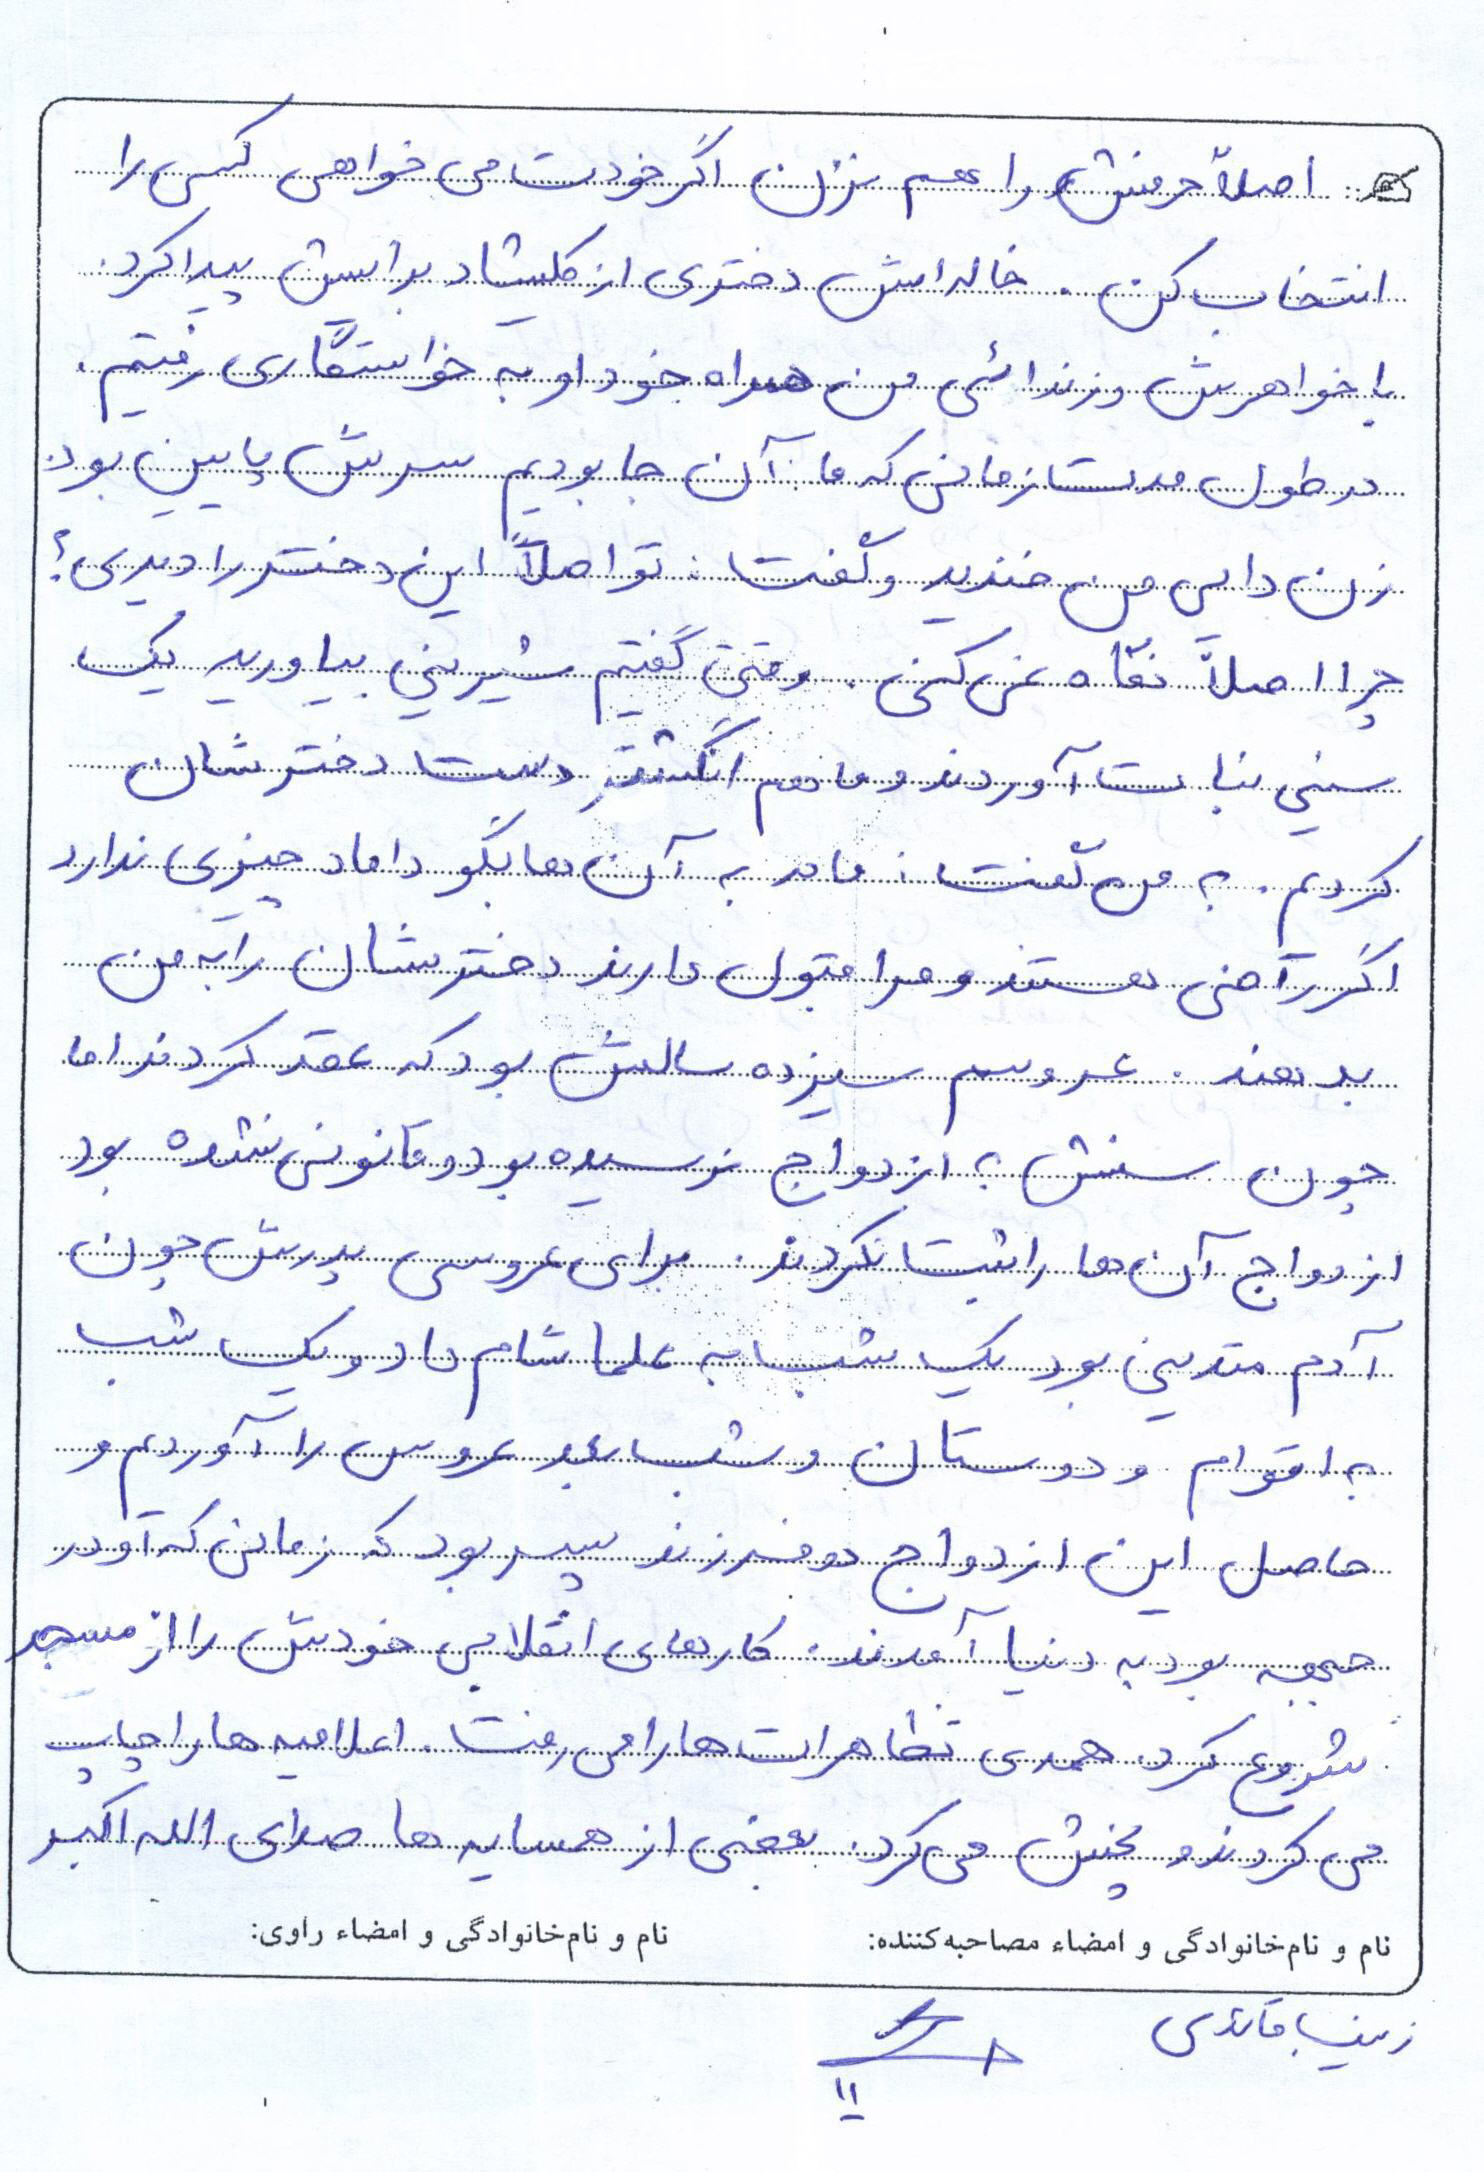 اصلاً حرفش را هم نزن اگر خودت می خواهی کسی را
انتخاب کن . خاله اش دختری از کلیشاد برایش پیدا کرد.
با خواهرش و زندائی من همراه خود او به خواستگاری رفتیم.
در طول مدت زمانی که ما آن جا بودیم سرش پایین بود.
زن دایی من خندید و گفت : تو اصلاً این دختر را دیدی؟
چرا اصلاً نگاه نمی کنی . وقتی گفتیم شیرینی بیاورید یک
سینی نبات آوردند و ما هم انگشتر دست دخترشان
کردیم . به من گفت : مادر به آن ها بگو داماد چیزی ندارد
اگر راضی هستند و مرا قبول دارند دخترشان را به من
بدهند . عروسم سیزده سالش بود که عقد کردند اما
چون سنش به ازدواج نرسیده بود و قانونی نشده بود
ازدواج آن ها را ثبت نکردند . برای عروسی پدرش چون
آدم متدینی بود یک شب به علما شام داد و یک شب
به اقوام و دوستان و شب بعد عروس را آوردیم و
حاصل این ازدواج دو فرزند پسر بود که زمانی که او در
جبهه بود به دنیا آمدند . کارهای انقلابی خودش را از مسجد
شروع کرد. همه ی تظاهرات ها را می رفت . اعلامیه ها را چاپ
می کردند و پخش می کرد. بعضی از همسایه ها صدای الله اکبر
نام و نام‌خانوادگی و امضاء مصاحبه‌کننده: نام و نام‌خانوادگی و امضاء راوی:
زینب قائدی
۱۱